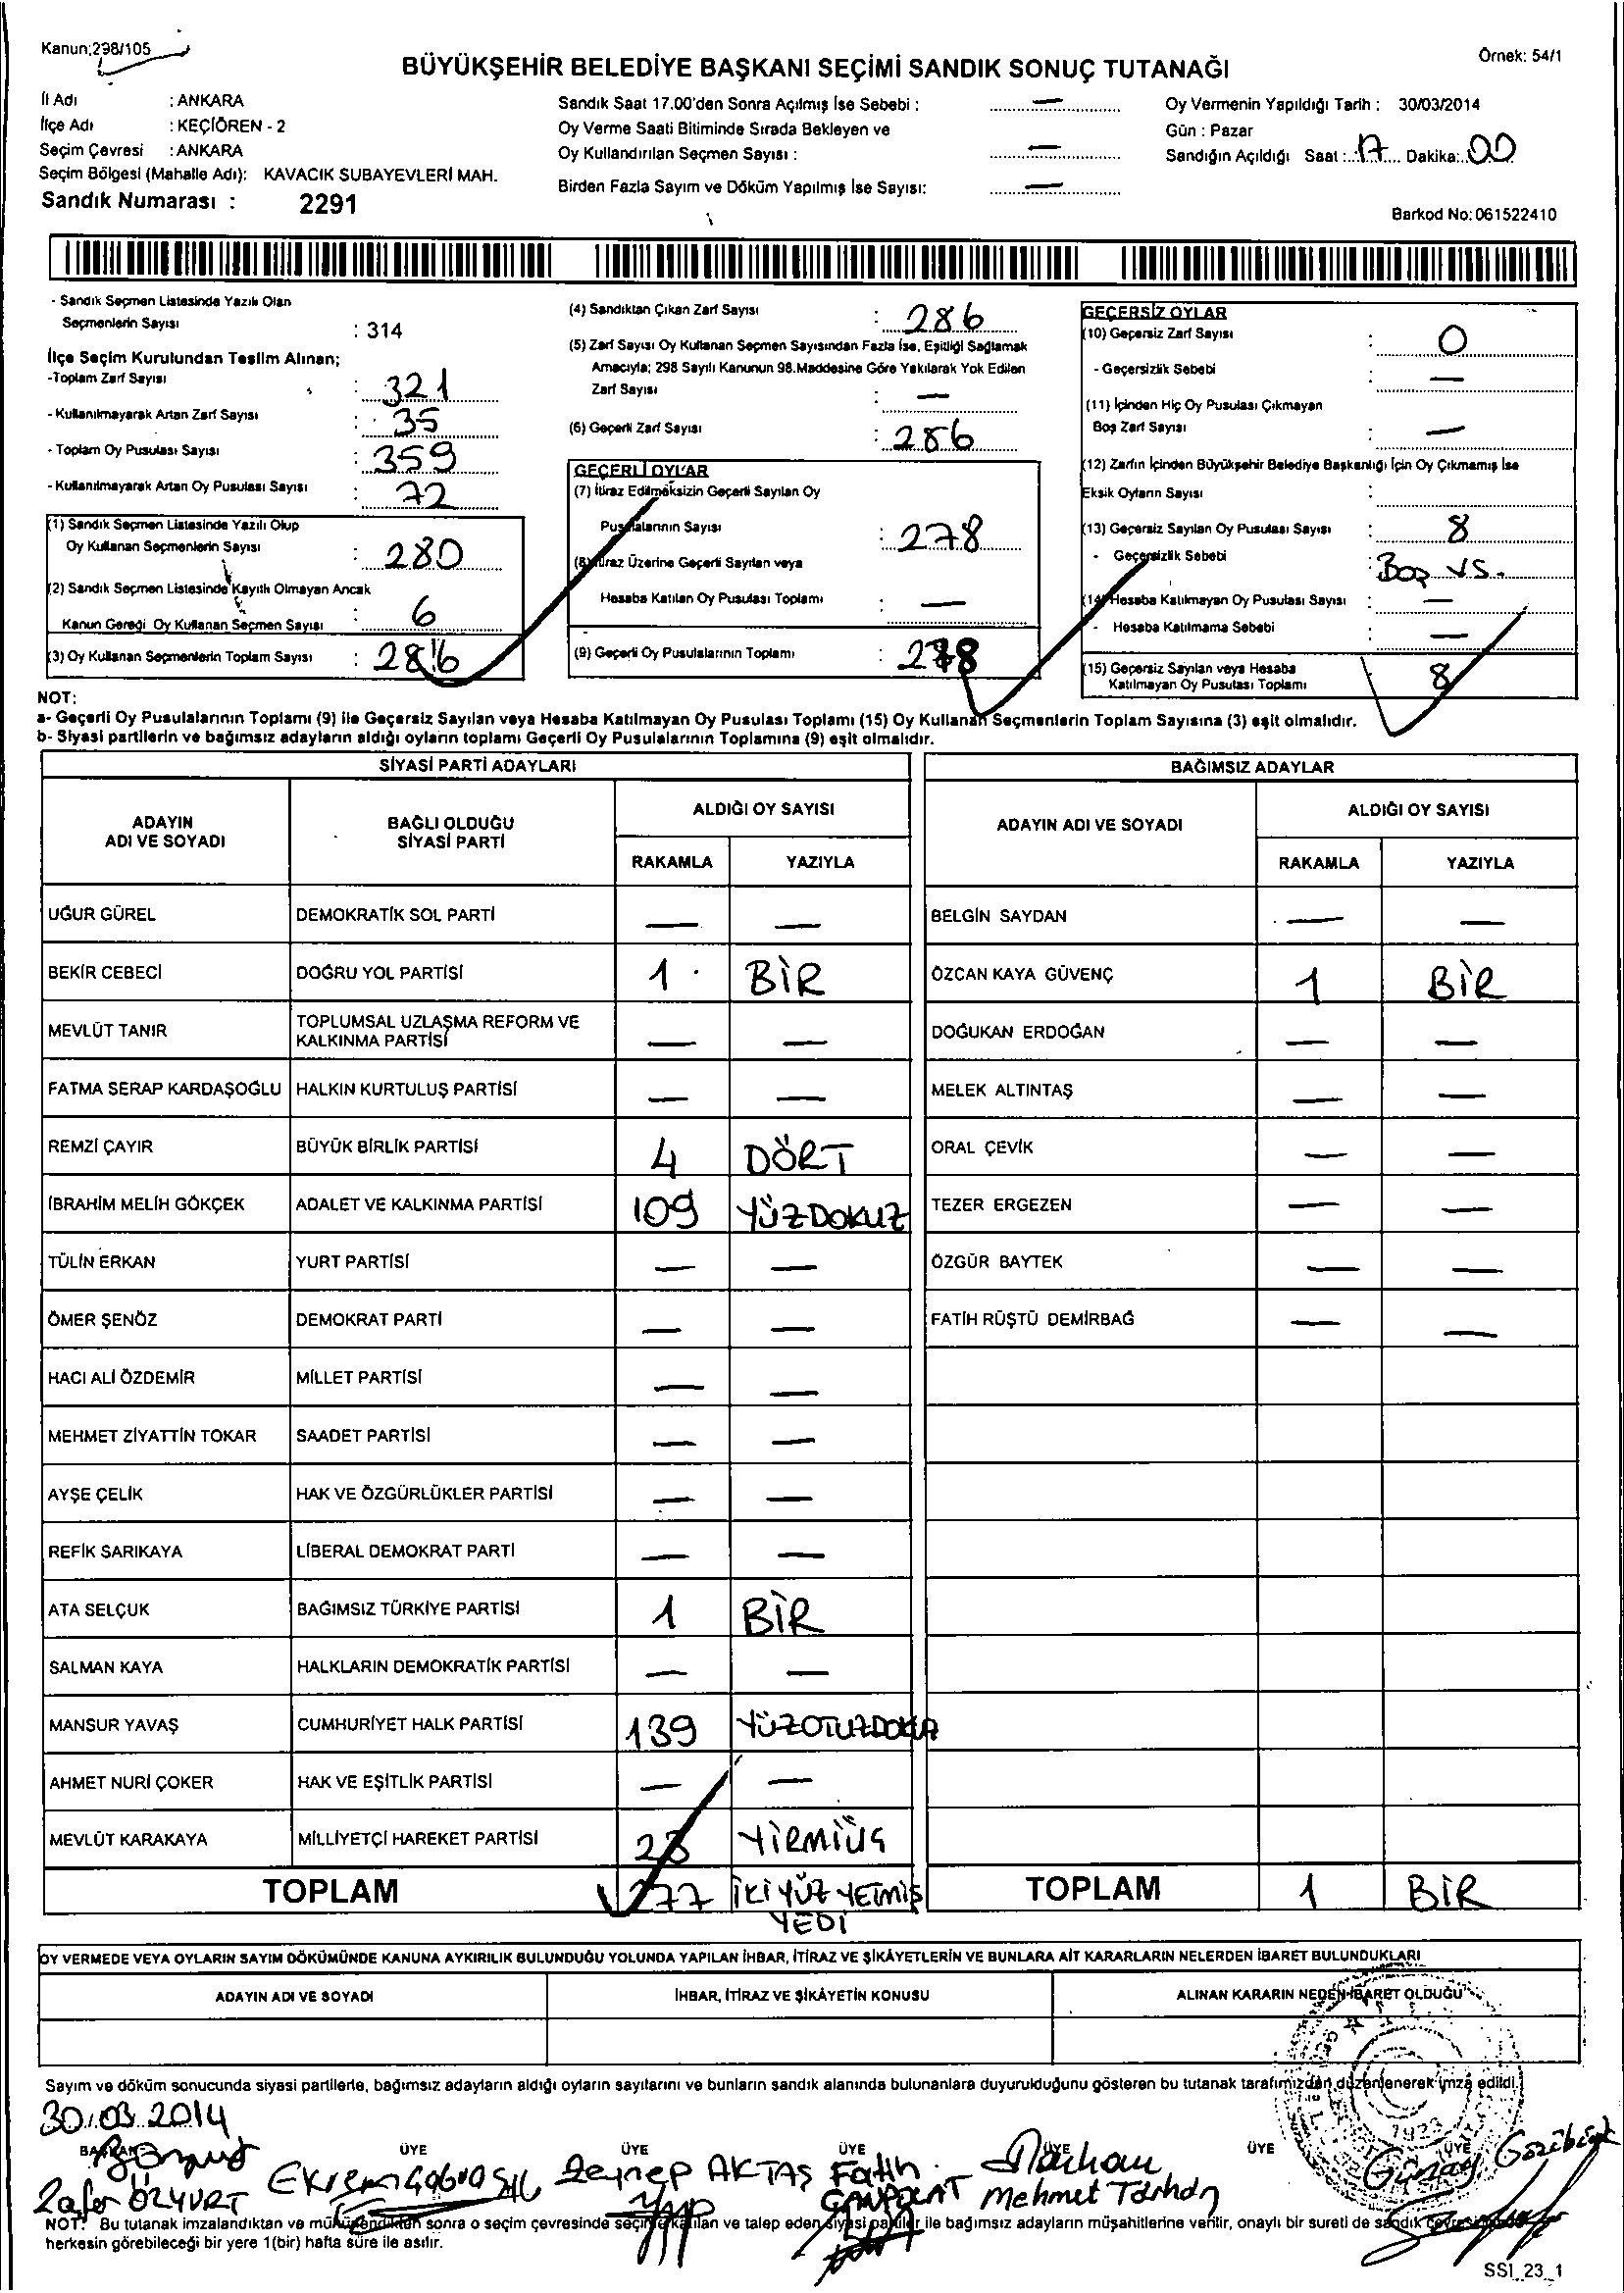 Kanun;298/105
Örnek: 54/1
BÜYÜKŞEHİR BELEDİYE BAŞKANI SEÇİMİ SANDIK SONUÇ TUTANAĞI
İl Adı : ANKARA
İlçe Adı : KEÇİÖREN - 2
Seçim Çevresi : ANKARA
Seçim Bölgesi (Mahalle Adı): KAVACIK SUBAYEVLERİ MAH.
Sandık Numarası : 2291
Sandık Saat 17.00'den Sonra Açılmış İse Sebebi : —
Oy Verme Saati Bitiminde Sırada Bekleyen ve
Oy Kullandırılan Seçmen Sayısı : —
Birden Fazla Sayım ve Döküm Yapılmış İse Sayısı: —
Oy Vermenin Yapıldığı Tarih : 30/03/2014
Gün : Pazar
Sandığın Açıldığı Saat : 17 Dakika: 00
Barkod No: 061522410
- Sandık Seçmen Listesinde Yazılı Olan
Seçmenlerin Sayısı : 314
İlçe Seçim Kurulundan Teslim Alınan;
-Toplam Zarf Sayısı : 321
- Kullanılmayarak Artan Zarf Sayısı : 35
- Toplam Oy Pusulası Sayısı : 359
- Kullanılmayarak Artan Oy Pusulası Sayısı : 72
(1) Sandık Seçmen Listesinde Yazılı Olup
Oy Kullanan Seçmenlerin Sayısı : 280
(2) Sandık Seçmen Listesinde Kayıtlı Olmayan Ancak
Kanun Gereği Oy Kullanan Seçmen Sayısı : 6
(3) Oy Kullanan Seçmenlerin Toplam Sayısı : 286
(4) Sandıktan Çıkan Zarf Sayısı : 286
(5) Zarf Sayısı Oy Kullanan Seçmen Sayısından Fazla İse, Eşitliği Sağlamak
Amacıyla; 298 Sayılı Kanunun 98.Maddesine Göre Yakılarak Yok Edilen
Zarf Sayısı : —
(6) Geçerli Zarf Sayısı : 286
GEÇERLİ OYLAR
(7) İtiraz Edilmeksizin Geçerli Sayılan Oy
Pusulalarının Sayısı : 278
(8) İtiraz Üzerine Geçerli Sayılan veya
Hesaba Katılan Oy Pusulası Toplamı : —
(9) Geçerli Oy Pusulalarının Toplamı : 278
GEÇERSİZ OYLAR
(10) Geçersiz Zarf Sayısı : 0
- Geçersizlik Sebebi : —
(11) İçinden Hiç Oy Pusulası Çıkmayan
Boş Zarf Sayısı : —
(12) Zarfın İçinden Büyükşehir Belediye Başkanlığı İçin Oy Çıkmamış İse
Eksik Oyların Sayısı :
(13) Geçersiz Sayılan Oy Pusulası Sayısı : 8
- Geçersizlik Sebebi : Boş vs.
(14) Hesaba Katılmayan Oy Pusulası Sayısı : —
- Hesaba Katılmama Sebebi : —
(15) Geçersiz Sayılan veya Hesaba
Katılmayan Oy Pusulası Toplamı : 8
NOT:
a- Geçerli Oy Pusulalarının Toplamı (9) ile Geçersiz Sayılan veya Hesaba Katılmayan Oy Pusulası Toplamı (15) Oy Kullanan Seçmenlerin Toplam Sayısına (3) eşit olmalıdır.
b- Siyasi partilerin ve bağımsız adayların aldığı oyların toplamı Geçerli Oy Pusulalarının Toplamına (9) eşit olmalıdır.
SİYASİ PARTİ ADAYLARI
ADAYIN ADI VE SOYADI BAĞLI OLDUĞU SİYASİ PARTİ ALDIĞI OY SAYISI
RAKAMLA YAZIYLA
UĞUR GÜREL DEMOKRATİK SOL PARTİ — —
BEKİR CEBECİ DOĞRU YOL PARTİSİ 1 BİR
MEVLÜT TANIR TOPLUMSAL UZLAŞMA REFORM VE KALKINMA PARTİSİ — —
FATMA SERAP KARDAŞOĞLU HALKIN KURTULUŞ PARTİSİ — —
REMZİ ÇAYIR BÜYÜK BİRLİK PARTİSİ 4 DÖRT
İBRAHİM MELİH GÖKÇEK ADALET VE KALKINMA PARTİSİ 109 YÜZDOKUZ
TÜLİN ERKAN YURT PARTİSİ — —
ÖMER ŞENÖZ DEMOKRAT PARTİ — —
HACI ALİ ÖZDEMİR MİLLET PARTİSİ — —
MEHMET ZİYATTİN TOKAR SAADET PARTİSİ — —
AYŞE ÇELİK HAK VE ÖZGÜRLÜKLER PARTİSİ — —
REFİK SARIKAYA LİBERAL DEMOKRAT PARTİ — —
ATA SELÇUK BAĞIMSIZ TÜRKİYE PARTİSİ 1 BİR
SALMAN KAYA HALKLARIN DEMOKRATİK PARTİSİ — —
MANSUR YAVAŞ CUMHURİYET HALK PARTİSİ 139 YÜZOTUZDOKUZ
AHMET NURİ ÇOKER HAK VE EŞİTLİK PARTİSİ — —
MEVLÜT KARAKAYA MİLLİYETÇİ HAREKET PARTİSİ 23 YİRMİÜÇ
TOPLAM 277 İKİYÜZ YETMİŞ
YEDİ
BAĞIMSIZ ADAYLAR
ADAYIN ADI VE SOYADI ALDIĞI OY SAYISI
RAKAMLA YAZIYLA
BELGİN SAYDAN — —
ÖZCAN KAYA GÜVENÇ 1 BİR
DOĞUKAN ERDOĞAN — —
MELEK ALTINTAŞ — —
ORAL ÇEVİK — —
TEZER ERGEZEN — —
ÖZGÜR BAYTEK — —
FATİH RÜŞTÜ DEMİRBAĞ — —
TOPLAM 1 BİR
OY VERMEDE VEYA OYLARIN SAYIM DÖKÜMÜNDE KANUNA AYKIRILIK BULUNDUĞU YOLUNDA YAPILAN İHBAR, İTİRAZ VE ŞİKÂYETLERİN VE BUNLARA AİT KARARLARIN NELERDEN İBARET BULUNDUKLARI
ADAYIN ADI VE SOYADI İHBAR, İTİRAZ VE ŞİKÂYETİN KONUSU ALINAN KARARIN NEDEN İBARET OLDUĞU
Sayım ve döküm sonucunda siyasi partilerle, bağımsız adayların aldığı oyların sayılarını ve bunların sandık alanında bulunanlara duyurulduğunu gösteren bu tutanak tarafımızdan düzenlenerek imza edildi.
30.03.2014
BAŞKAN ÜYE ÜYE ÜYE ÜYE ÜYE ÜYE
Zafer ÖZYURT Ekrem Zeynep AKTAŞ Fatih CANPOLAT Mehmet Tarhan Günay
NOT: Bu tutanak imzalandıktan ve mühürlendikten sonra o seçim çevresinde seçime katılan ve talep eden siyasi partiler ile bağımsız adayların müşahitlerine verilir, onaylı bir sureti de sandık çevresinde
herkesin görebileceği bir yere 1(bir) hafta süre ile asılır.
SSI_23_1